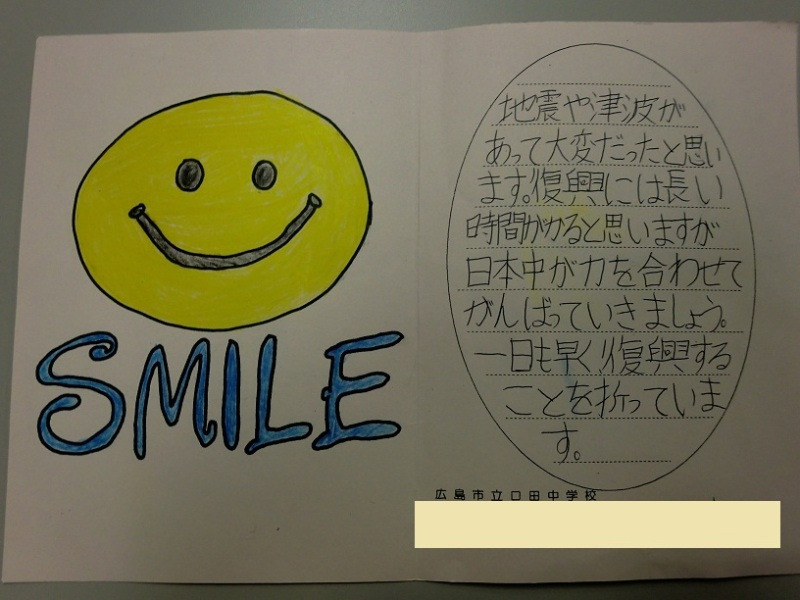 SMILE
地震や津波が
あって大変だったと思い
ます。復興には長い
時間がかると思いますが
日本中が力を合わせて
がんばっていきましょう。
一日も早く復興する
ことを祈っていま
す。
広島市立口田中学校